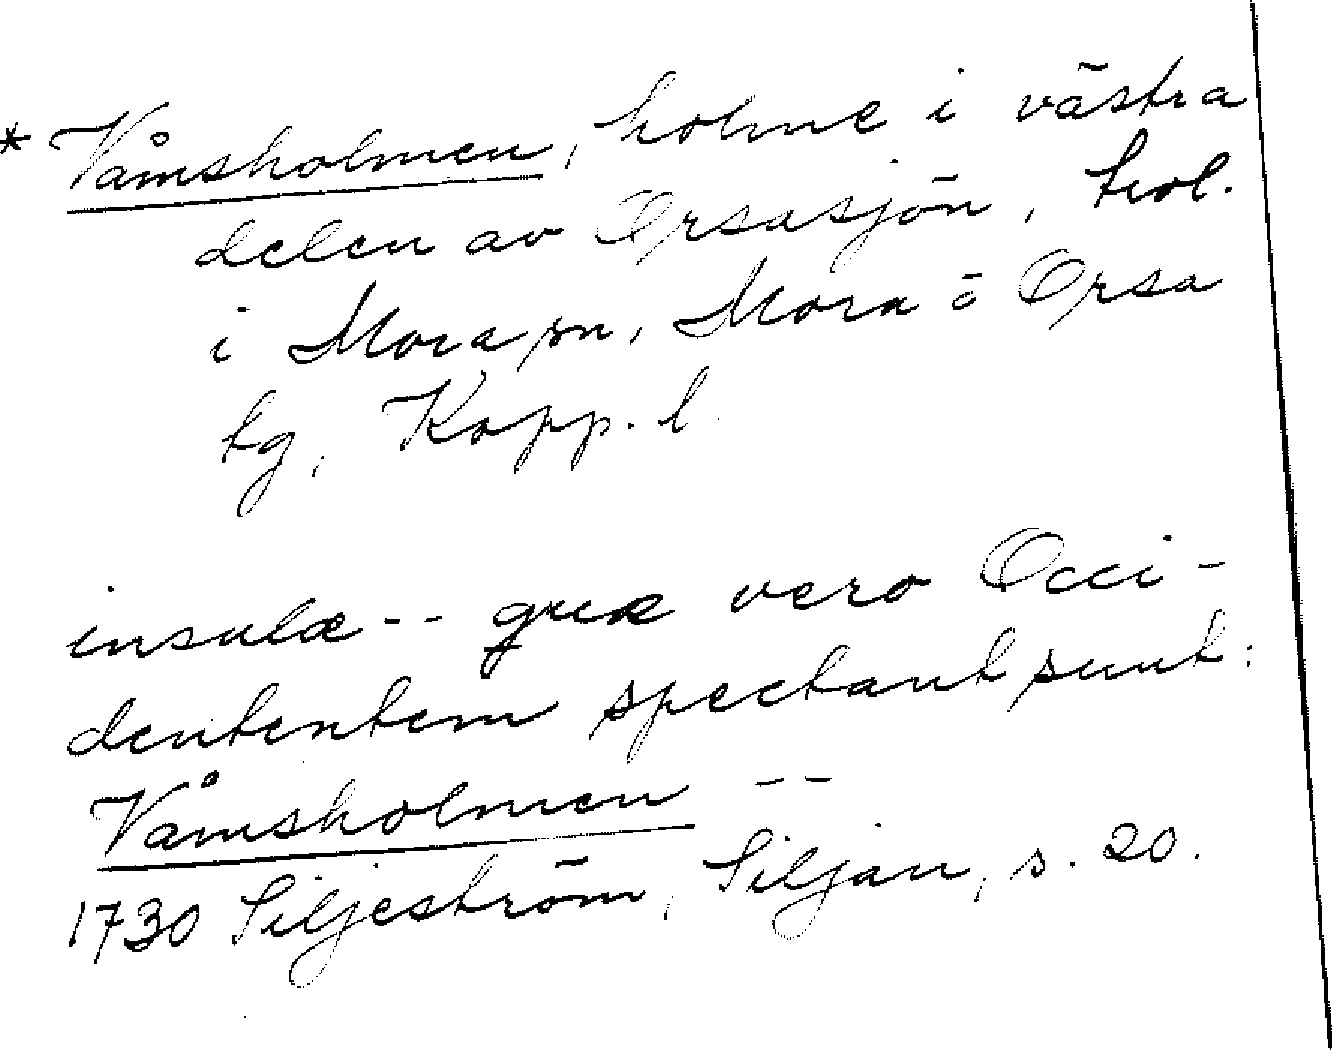 * Våmsholmen, holme i västra
delen av Orsasjön, trol.
i Mora sn, Mora o Orsa
tg, Kopp. l.
insulæ -- quæ vero Occi-
dententem spectant sunt:
Våmsholmen --
1730 Siljeström, Siljan, s. 20.